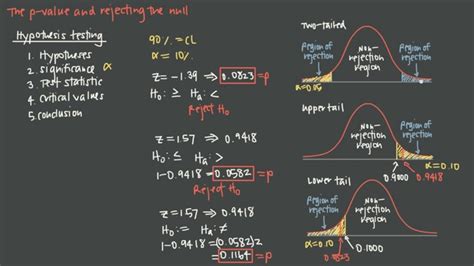 The p-value and rejecting the null
Hypothesis testing
1. Hypotheses
2. significance α
3. Test statistic
4. Critical values
5. conclusion
90%=CL
α=10%
z=-1.39 ⇒ 0.0823 =p
H₀: ≥ Hₐ: <
Reject H₀
z=1.57 ⇒ 0.9418
H₀: ≤ Hₐ: >
1-0.9418=0.0582=p
Reject H₀
z=1.57 ⇒ 0.9418
H₀: = Hₐ: ≠
1-0.9418=(0.0582)2
=0.1164=p
Two-tailed
Region of rejection
Non-rejection region
Region of rejection
α=0.05
Upper tail
Non-rejection region
Region of rejection
α=0.10
0.9000
0.9418
Lower tail
Region of rejection
Non-rejection region
α=0.10
0.0823
0.1000